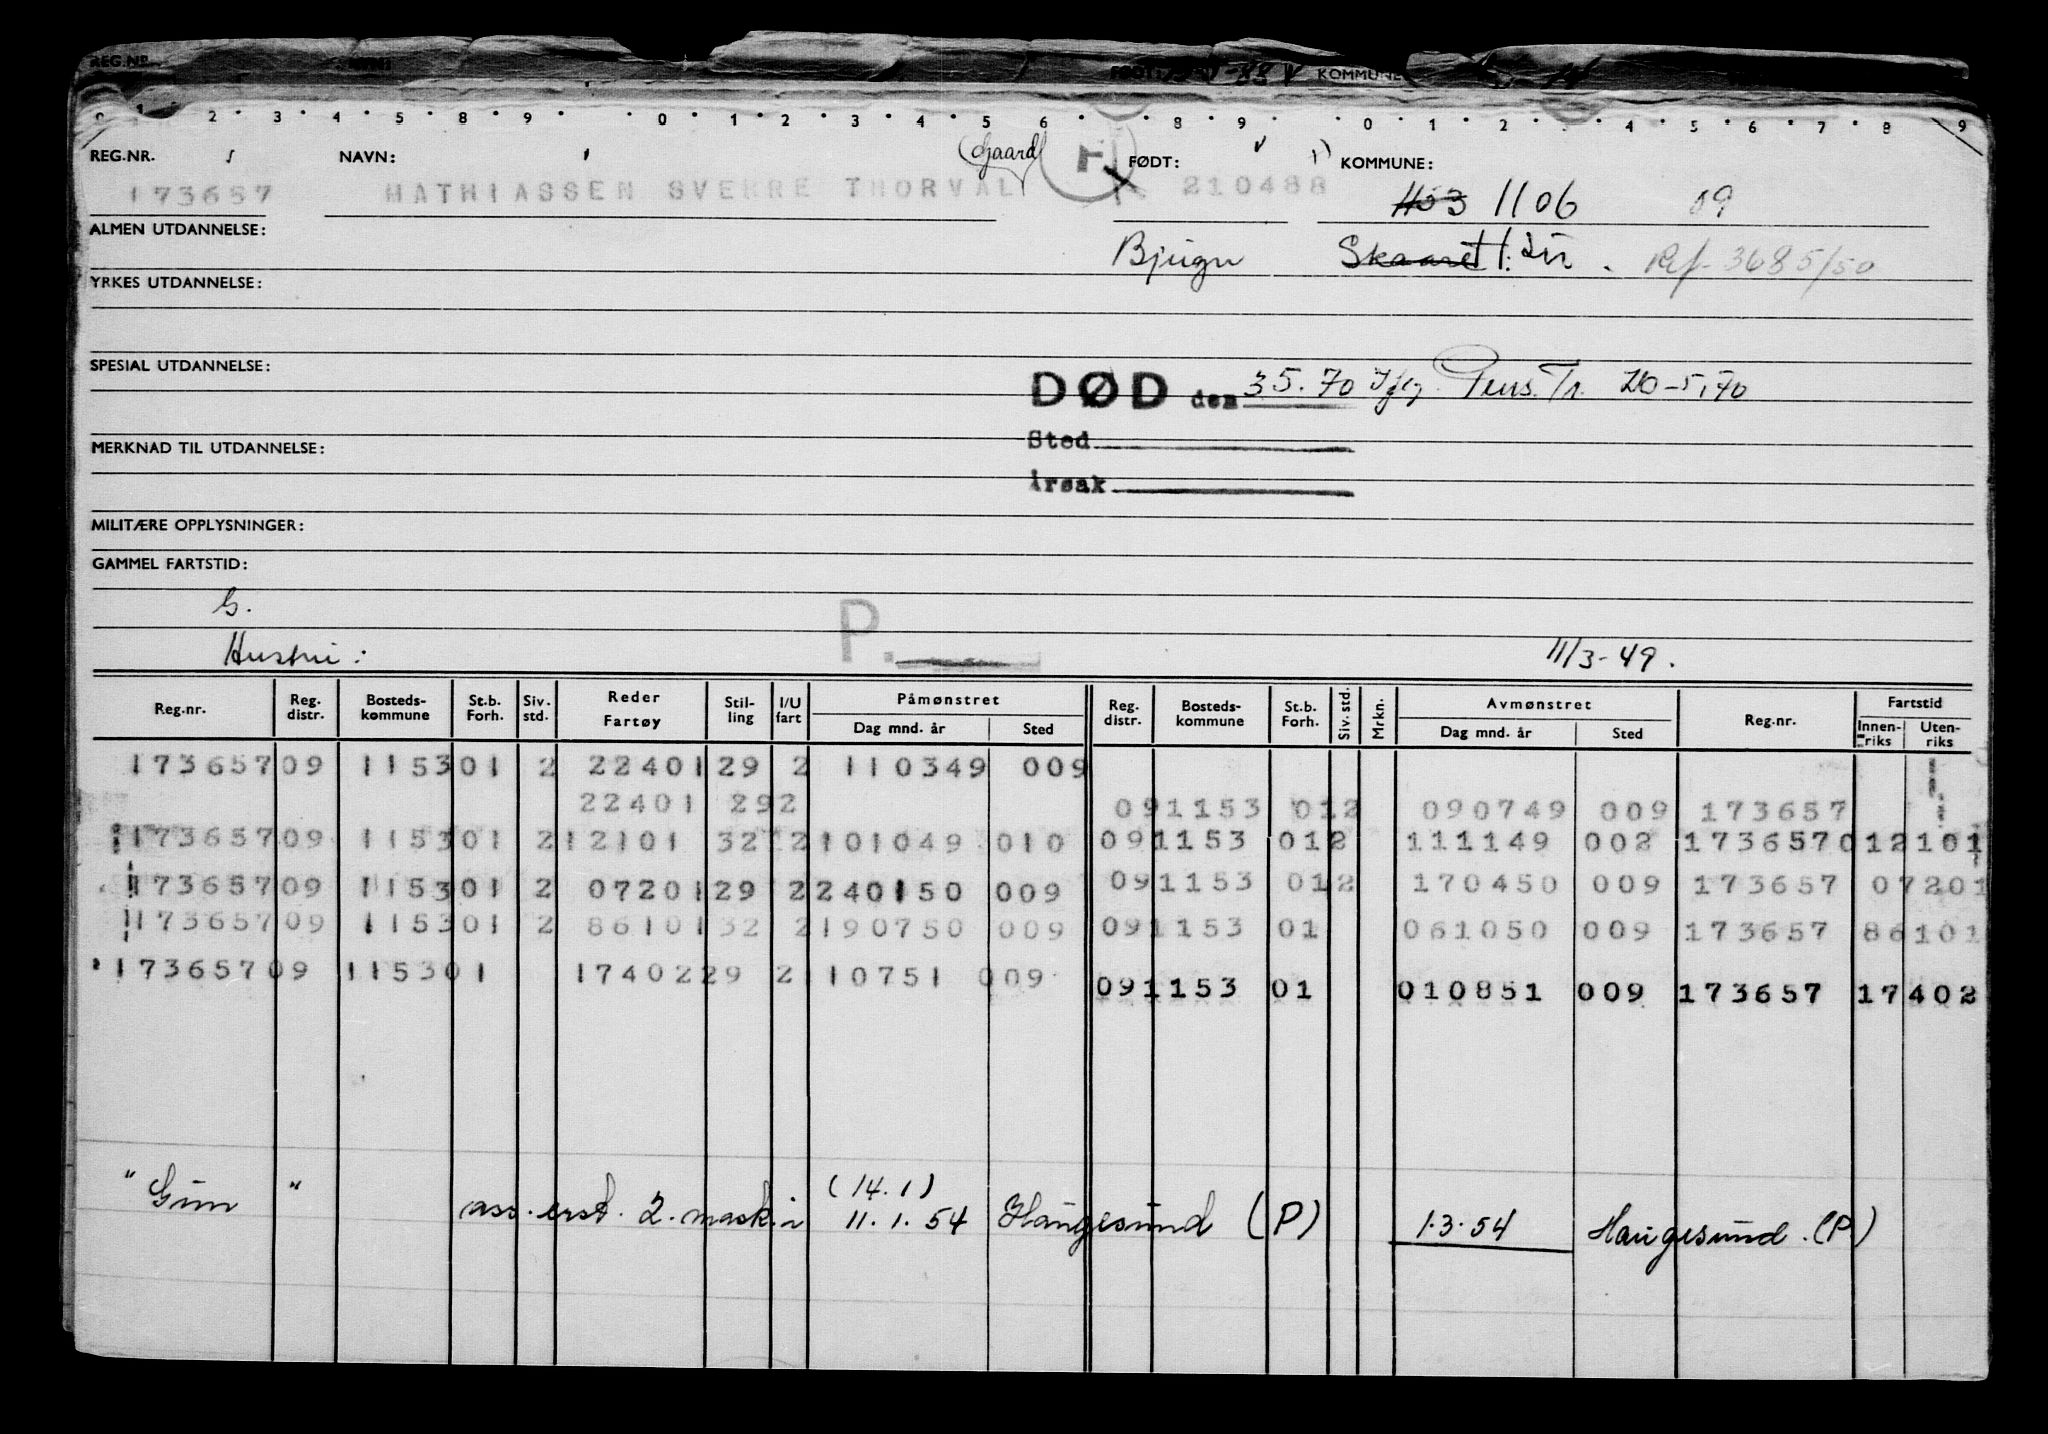 REG.NR. KOMMUNE:
1 2 3 4 5 8 9 0 1 2 3 4 5 6 8 9 0 1 2 3 4 5 6 7 8 9
REG.NR. NAVN: (Gaard) H FØDT: 1) KOMMUNE:
173657 MATHIASSEN SVERRE THORVAL 210488 1106 09
ALMEN UTDANNELSE: Bjugn Skaaret Ref. 3685/50
YRKES UTDANNELSE:
SPESIAL UTDANNELSE:
DØD den 3 5. 70 Iflg. Pens. Tr. 20-5.70
Sted
MERKNAD TIL UTDANNELSE:
Årsak
MILITÆRE OPPLYSNINGER:
GAMMEL FARTSTID:
G. P.
Hustru: 11/3-49.
Reg.nr. Reg. distr. Bosteds- kommune St.b. Forh. Siv. std. Reder Fartøy Stil- ling I/U fart Påmønstret Dag mnd. år Sted Reg. distr. Bosteds- kommune St.b. Forh. Siv. std. Mrkn. Avmønstret Dag mnd. år Sted Reg.nr. Fartstid Innen- riks Uten- riks
173657 09 1153 01 2 22401 29 2 110349 009
22401 29 2 09 1153 01 2 090749 009 173657
173657 09 1153 01 2 12101 32 2 101049 010 09 1153 01 2 111149 002 173657 012101
173657 09 1153 01 2 07201 29 2 240150 009 09 1153 01 2 170450 009 173657 07201
173657 09 1153 01 2 86101 32 2 190750 009 09 1153 01 061050 009 173657 86101
173657 09 1153 01 17402 29 2 110751 009 09 1153 01 010851 009 173657 17402
(14.1)
"Gun" ass. erst. 2. maskin 11.1.54 Haugesund (P) 1.3.54 Haugesund. (P)